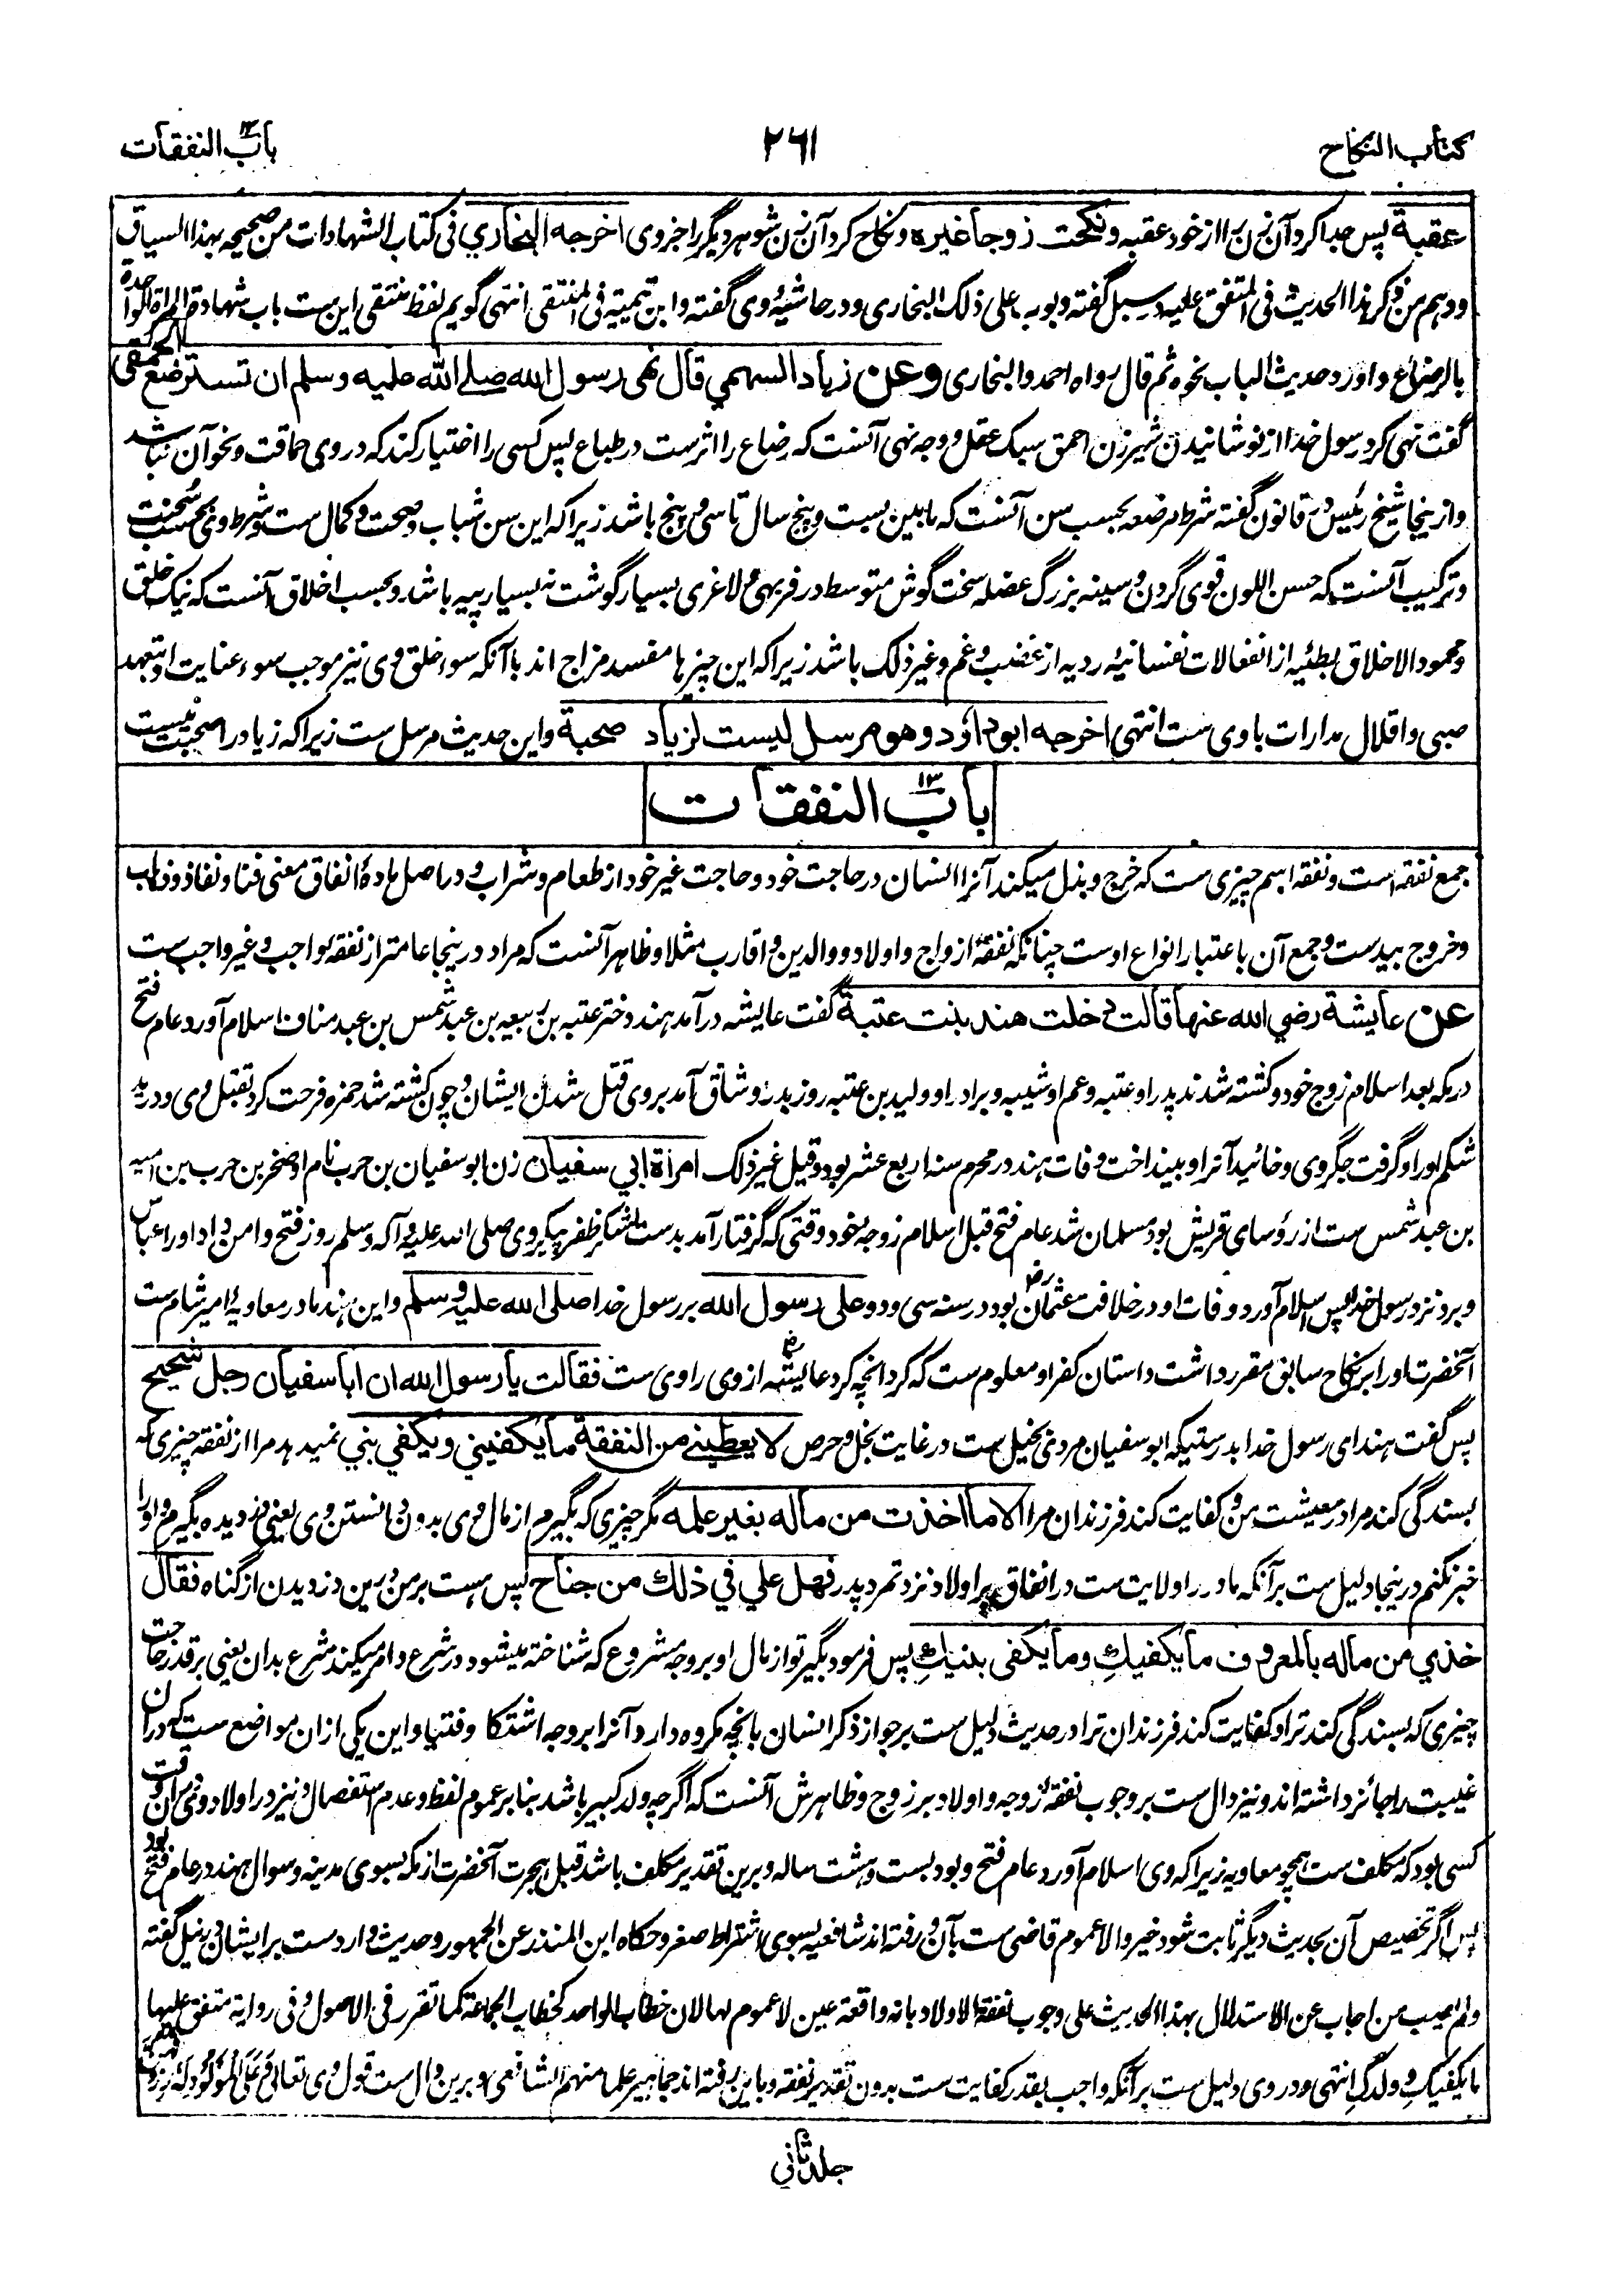 كتاب النكاح
٢٦١
باب النفقات
عقبة پس جدا کرد آن زن را از خود عقبه ونكحت زوجا غيره ونکاح کرد آن زن شوهر دیگر را جز وی اخرجه البخاري فی کتاب الشهادات من صحیحه بهذا السیاق
ووهم من ذکر هذا الحدیث فی المتفق علیه در سبل گفته وبوب علی ذلک البخاری ودر حاشیهٔ وی گفته وابن تیمیة فی المنتقی انتهی گویم لفظ منتقی این ست باب شهادة المرأة الواحدة
بالرضاع واورد حدیث الباب نحوه ثم قال رواه احمد والبخاری وعن زياد السهمي قال نهى رسول الله صلى الله عليه وسلم ان تسترضع الحمقى
گفت نهی کرد رسول خدا از نوشانیدن شیر زن احمق سبک عقل ووجه نهی آنست که رضاع را اثرست در طباع پس کسی را اختیار کند که در وی حماقت ونحو آن نباشد
وازینجا شیخ رئیس در قانون گفته شرط مرضعه بحسب سن آنست که مابین بست وپنج سال تا سی وپنج باشد زیرا که این سن شباب وصحت وکمال ست وشرط وی بحسب سحنت
وترکیب آنست که حسن اللون قوی گردن وسینه بزرگ عضله سخت گوش متوسط در فربهی ولاغری بسیار گوشت نه بسیار پیه باشد وبحسب اخلاق آنست که نیک خلق
ومحمود الاخلاق بطئیه از انفعالات نفسانیهٔ ردیه از غضب وغم وغیر ذلک باشد زیرا که این چیزها مفسد مزاج اند با آنکه سوء خلق وی نیز موجب سوء عنایت او بتعهد
صبی واقلال مدارات با وی ست انتهی اخرجه ابوداؤد وهو مرسل ليست لزياد صحبة واین حدیث مرسل ست زیرا که زیاد را صحبت نیست
باب النفقات
١٣
جمع نفقه است ونفقه اسم چیزی ست که خرج وبذل میکند آنرا انسان در حاجت خود وحاجت غیر خود از طعام وشراب ودر اصل مادهٔ انفاق معنی فنا ونفاذ وذهاب
وخروج بیدست وجمع آن باعتبار انواع اوست چنانکه نفقهٔ ازواج واولاد ووالدین واقارب مثلا وظاهر آنست که مراد درینجا عامتر از نفقهٔ واجب وغیر واجب ست
عن عايشة رضي الله عنها قالت دخلت هند بنت عتبة گفت عایشه درآمد هند دختر عتبه بن ربیعه بن عبد شمس بن عبد مناف اسلام آورد عام فتح
در مکه بعد اسلام زوج خود وکشته شدند پدر او عتبه وعم او شیبه وبرادر او ولید بن عتبه روز بدر وشاق آمد بر وی قتل شدن ایشان وچون کشته شد حمزه فرحت کرد بقتل وی ودرید
شکم او را وگرفت جگر وی وخائید آنرا وبینداخت وفات هند در محرم سنه اربع عشر بود وقیل غیر ذلک امرأة ابي سفيان زن ابوسفیان بن حرب نام او صخر بن حرب بن امیه
بن عبد شمس ست از رؤسای قریش بود مسلمان شد عام فتح قبل اسلام زوجهٔ خود وقتی که گرفتار آمد بدست لشکر ظفر پیکر وی صلی الله علیه وآله وسلم روز فتح وامن داد او را عباس
وبرد نزد رسول خدا پس اسلام آورد ووفات او در خلافت عثمان رض بود در سنه سی ودو على رسول الله بر رسول خدا صلى الله عليه وسلم واین هند مادر معاویهٔ امیر شام ست
آنحضرت او را بر نکاح سابق مقرر داشت داستان کفر او معلوم ست که کرد انچه کرد عایشه رض از وی راوی ست فقالت يا رسول الله ان ابا سفيان رجل شحيح
پس گفت هند ای رسول خدا بدرستیکه ابوسفیان مردی بخیل ست در غایت بخل وحرص لا يعطيني من النفقة ما يكفيني ويكفي بني نمیدهد مرا از نفقه چیزی که
بسندگی کند مرا در معیشت من وکفایت کند فرزندان مرا الا ما اخذت من ماله بغير علمه مگر چیزی که بگیرم از مال وی بدون دانستن وی یعنی دزدیده بگیرم واو را
خبر نکنم درینجا دلیل ست برآنکه مادر را ولایت ست در انفاق بر اولاد نزد تمرد پدر فهل علي في ذلك من جناح پس هست بر من درین دزدیدن از گناه فقال
خذي من ماله بالمعروف ما يكفيك وما يكفي بنيك پس فرمود بگیر تو از مال او بر وجه مشروع که شناخته میشود در شرع وامر میکند شرع بدان یعنی بر قدر حاجت
چیزی که بسندگی کند ترا وکفایت کند فرزندان ترا در حدیث دلیل ست بر جواز ذکر انسان بانچه مکروه دارد آنرا بر وجه اشتکا وفتیا واین یکی از ان مواضع ست که دران
غیبت را جائز داشته اند ونیز دال ست بر وجوب نفقهٔ زوجه واولاد بر زوج وظاهرش آنست که اگر چه ولد کبیر باشد بنابر عموم لفظ وعدم استفصال ونیز در اولاد وی دران وقت
کسی بود که مکلف ست همچو معاویه زیرا که وی اسلام آورد عام فتح وبود بست وهشت ساله وبرین تقدیر مکلف باشد قبل هجرت آنحضرت از مکه بسوی مدینه وسوال هند در عام فتح بود
پس اگر تخصیص آن بحدیث دیگر ثابت شود خیر والا عموم قاضی ست بآن ورفته اند شافعیه بسوی اشتراط صغر وحکاه ابن المنذر عن الجمهور وحدیث وارد ست بر ایشان در نیل گفته
ولم یصب من اجاب عن الاستدلال بهذا الحدیث علی وجوب نفقة الاولاد بانه واقعة عین لا عموم لها لان خطاب الواحد کخطاب الجماعة کما تقرر فی الاصول وفی روایة متفق علیها
ما یکفیک وولدک انتهی ودر وی دلیل ست برآنکه واجب بقدر کفایت ست بدون تقدیر نفقه وباین رفته اند جماهیر علما منهم الشافعی وبرین دال ست قول وی تعالی وَعَلَى الْمَوْلُودِ لَهُ رِزْقُهُنَّ
جلد ثانی